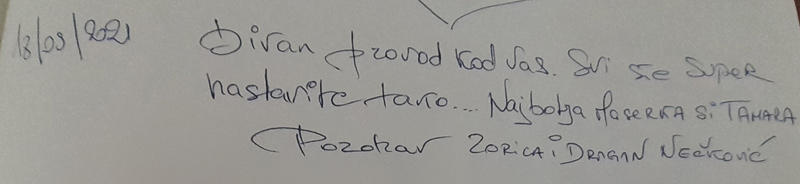 18/09/2021 Divan provod kod vas. Svi ste super
nastavite tako... Najbolja maserka si TAMARA
Pozdrav ZORICA i DRAGAN NEČKOVIĆ